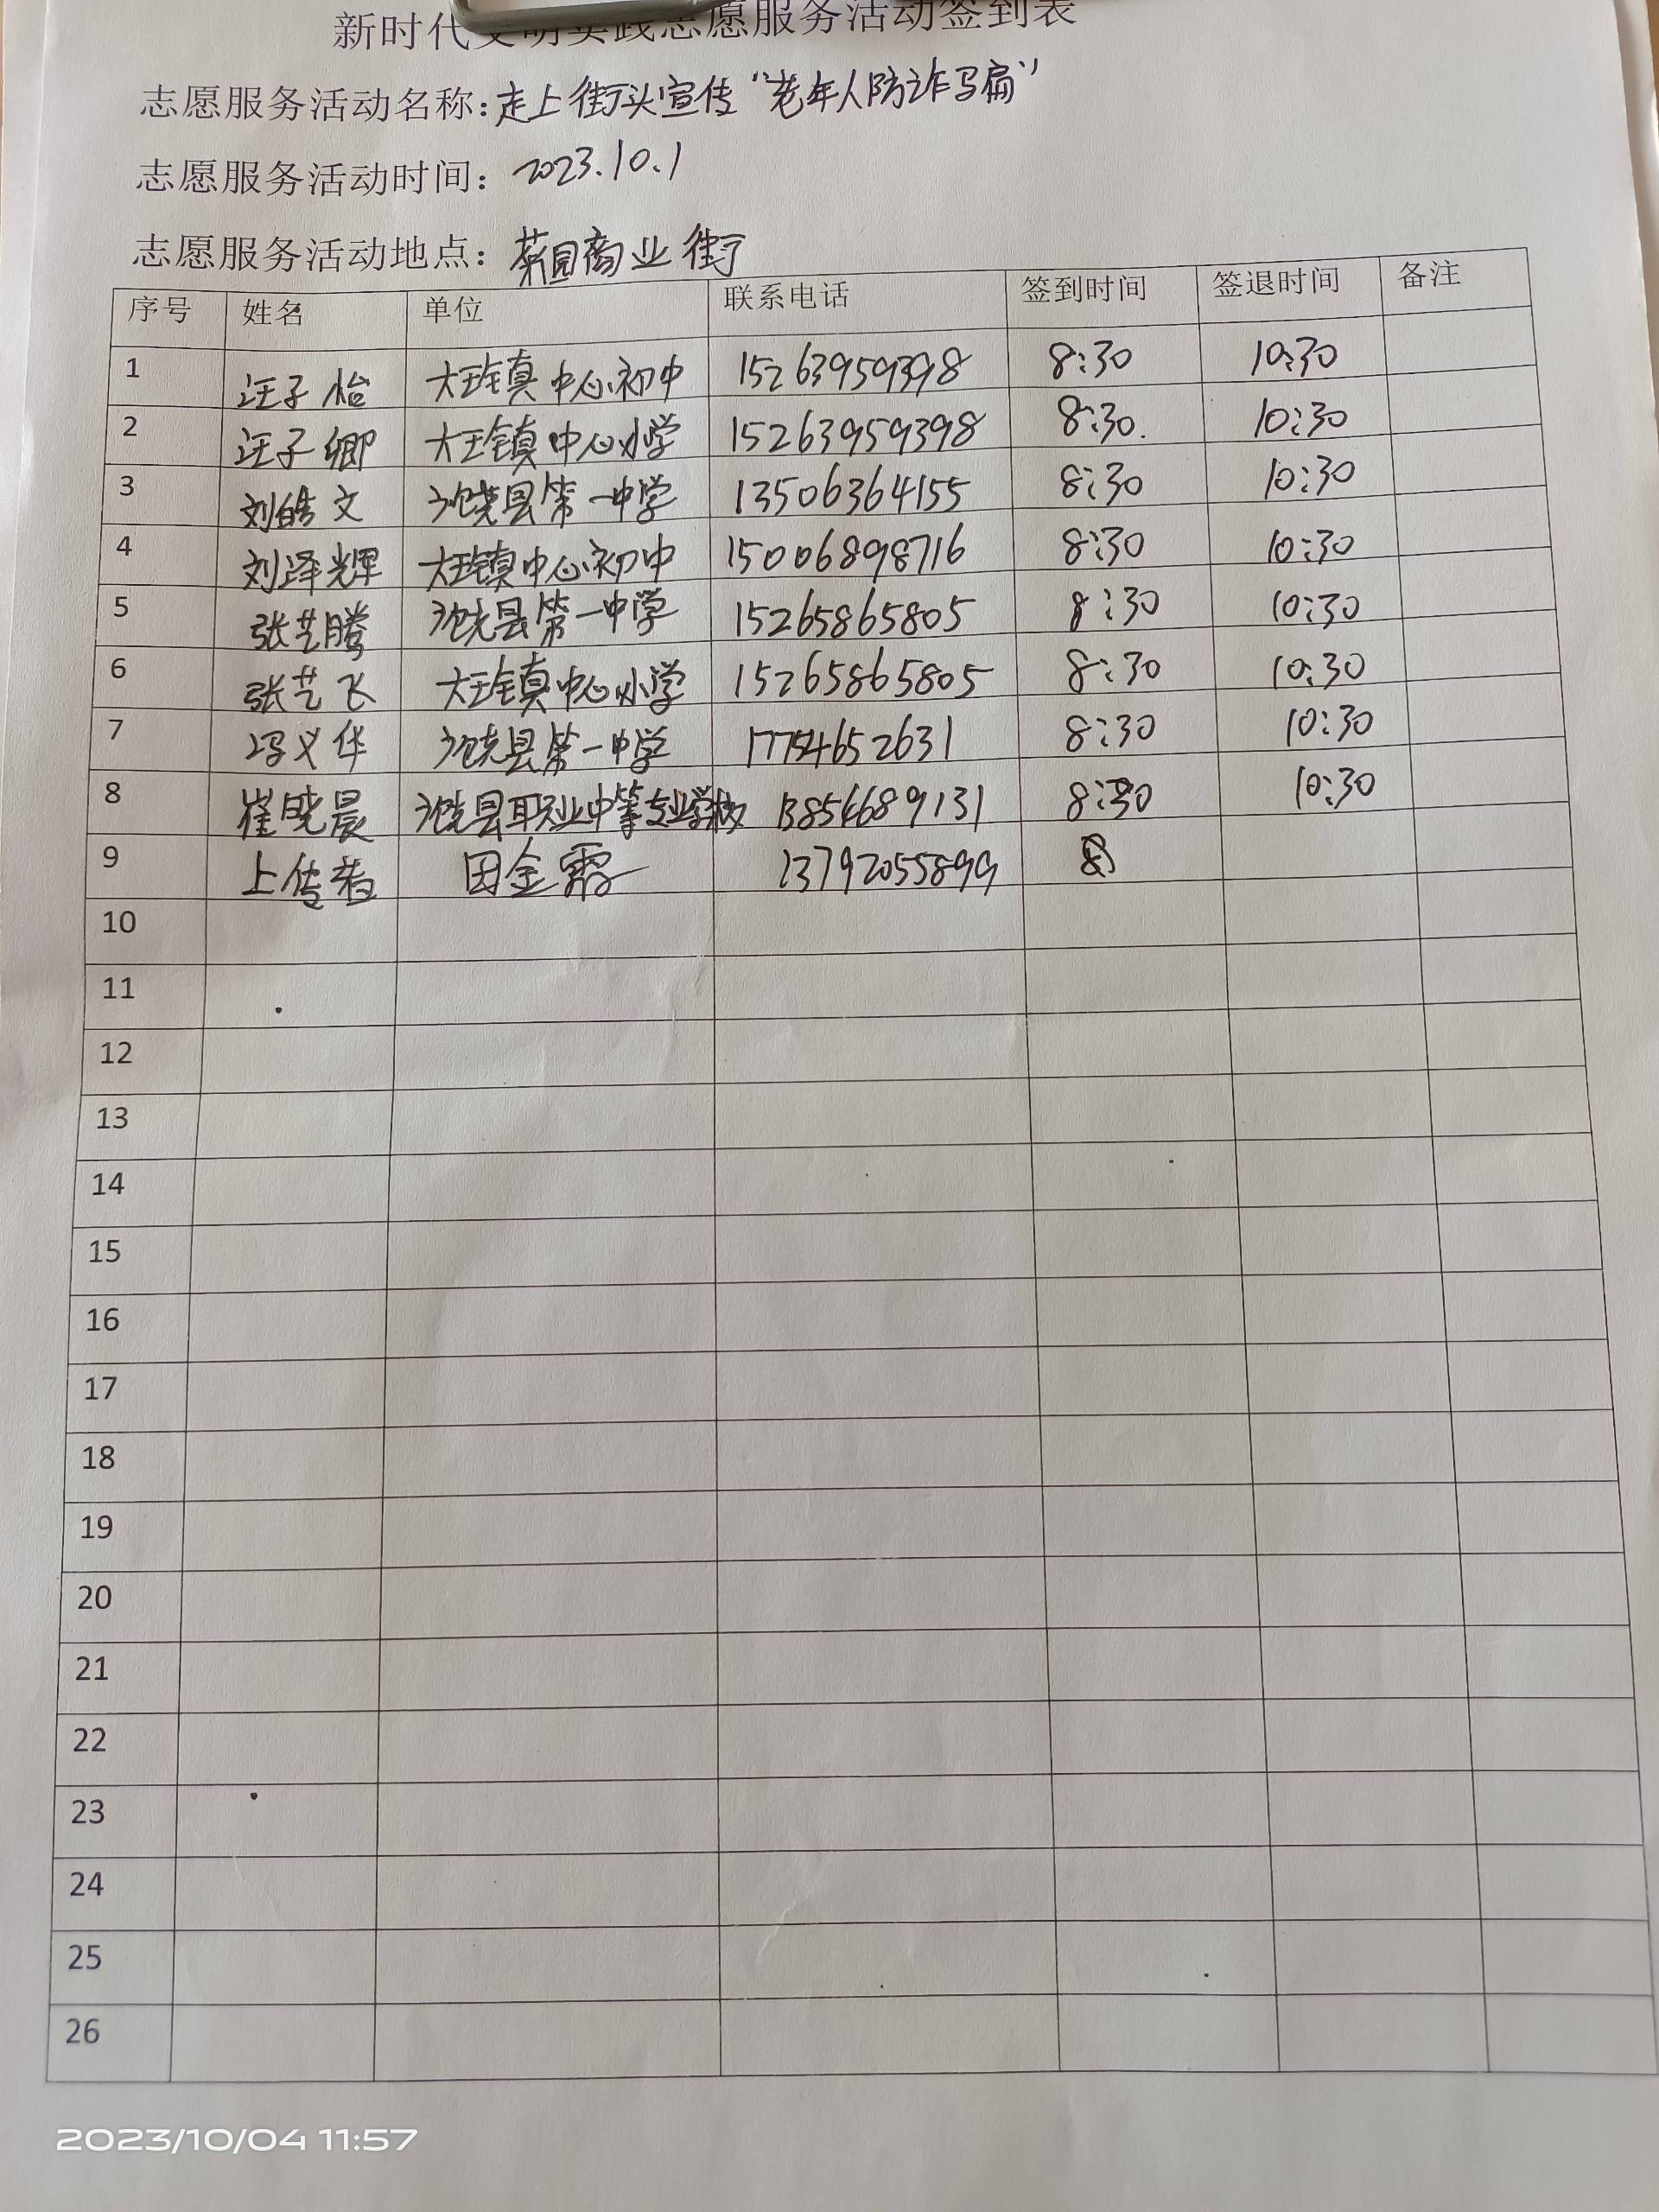 新时代文明实践志愿服务活动签到表
志愿服务活动名称：走上街头宣传“老年人防诈马扁”
志愿服务活动时间：2023.10.1
志愿服务活动地点：菜园商业街
序号 姓名 单位 联系电话 签到时间 签退时间 备注
1 汪子怡 大王镇中心初中 15263959398 8:30 10:30
2 汪子卿 大王镇中心小学 15263959398 8:30 10:30
3 刘皓文 广饶县第一中学 13506364155 8:30 10:30
4 刘泽辉 大王镇中心初中 15006898716 8:30 10:30
5 张艺腾 广饶县第一中学 15265865805 8:30 10:30
6 张艺飞 大王镇中心小学 15265865805 8:30 10:30
7 冯义华 广饶县第一中学 17754652631 8:30 10:30
8 崔晓晨 广饶县职业中等专业学校 13854689131 8:30 10:30
9 上传者 田金霖 13792055899
10
11
12
13
14
15
16
17
18
19
20
21
22
23
24
25
26
2023/10/04 11:57